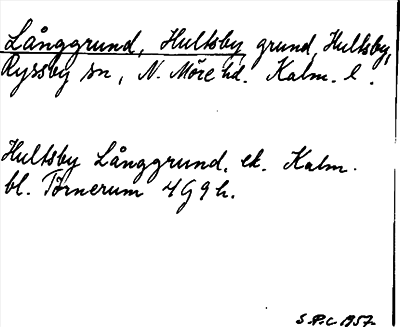 Långgrund, Hultsby grund, Hultsby,
Ryssby sn, N. Möre hd. Kalm. l.
Hultsby Långgrund. ek. Kalm.
bl. Törnerum 4G9h.
S.P.C. 1957